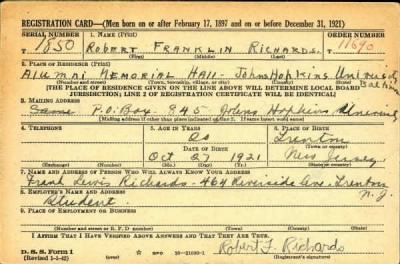 REGISTRATION CARD—(Men born on or after February 17, 1897 and on or before December 31, 1921)
SERIAL NUMBER 1. NAME (Print) ORDER NUMBER
1850 ROBERT FRANKLIN RICHARDS. 11690
2. PLACE OF RESIDENCE (Print)
Alumni Memorial Hall - Johns Hopkins University Baltimore
[THE PLACE OF RESIDENCE GIVEN ON THE LINE ABOVE WILL DETERMINE LOCAL BOARD
JURISDICTION; LINE 2 OF REGISTRATION CERTIFICATE WILL BE IDENTICAL]
3. MAILING ADDRESS
Same P.O. Box 845 Johns Hopkins University
[Mailing address if other than place indicated on line 2. If same insert word same]
4. TELEPHONE 5. AGE IN YEARS 6. PLACE OF BIRTH
20 Trenton
DATE OF BIRTH (Town or county)
Oct 27 1921 New Jersey
(Exchange) (Number) (Mo.) (Day) (Yr.) (State or country)
7. NAME AND ADDRESS OF PERSON WHO WILL ALWAYS KNOW YOUR ADDRESS
Frank Lewis Richards - 464 Riverside Ave. Trenton N.J.
8. EMPLOYER'S NAME AND ADDRESS
Student
9. PLACE OF EMPLOYMENT OR BUSINESS
(Number and street or R. F. D. number) (Town) (County) (State)
I AFFIRM THAT I HAVE VERIFIED ABOVE ANSWERS AND THAT THEY ARE TRUE.
D. S. S. Form 1
(Revised 1-1-42) Robert F. Richards